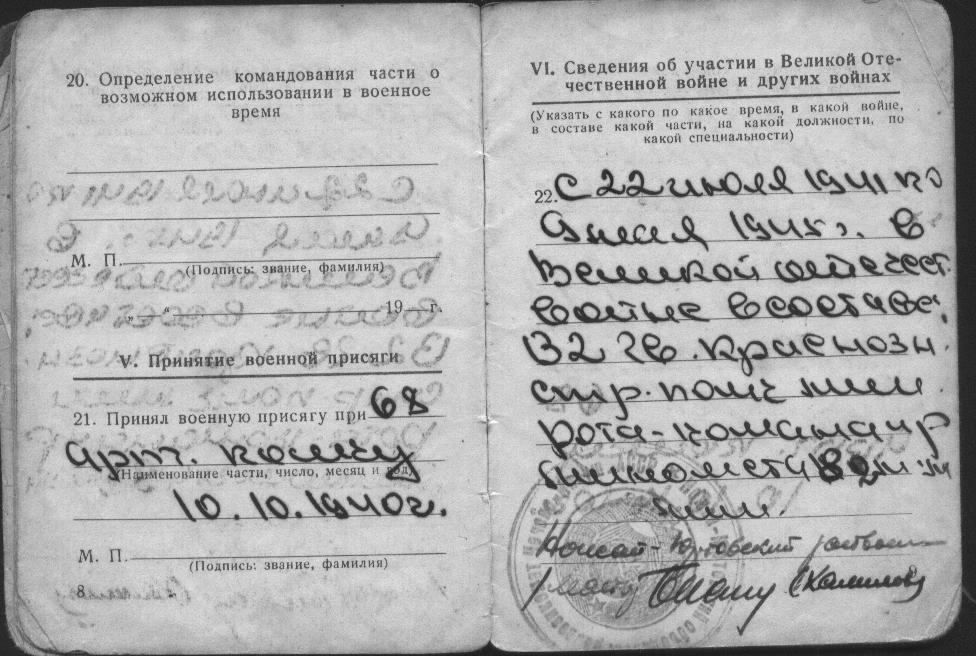 20. Определение командования части о
возможном использовании в военное
время
М. П.
(Подпись: звание, фамилия)
„ “ 19 г.
V. Принятие военной присяги
21. Принял военную присягу при 68
арт. полку
(Наименование части, число, месяц и год)
10.10.1940г.
М. П.
(Подпись: звание, фамилия)
8
VI. Сведения об участии в Великой Оте-
чественной войне и других войнах
(Указать с какого по какое время, в какой войне,
в составе какой части, на какой должности, по
какой специальности)
22. С 22 июля 1941 по
9 мая 1945г. в
Великой отечест.
войне в составе
132 гв. Краснозн.
стр. полк мин.
рота-командир
миномета 82 м/м
мин.